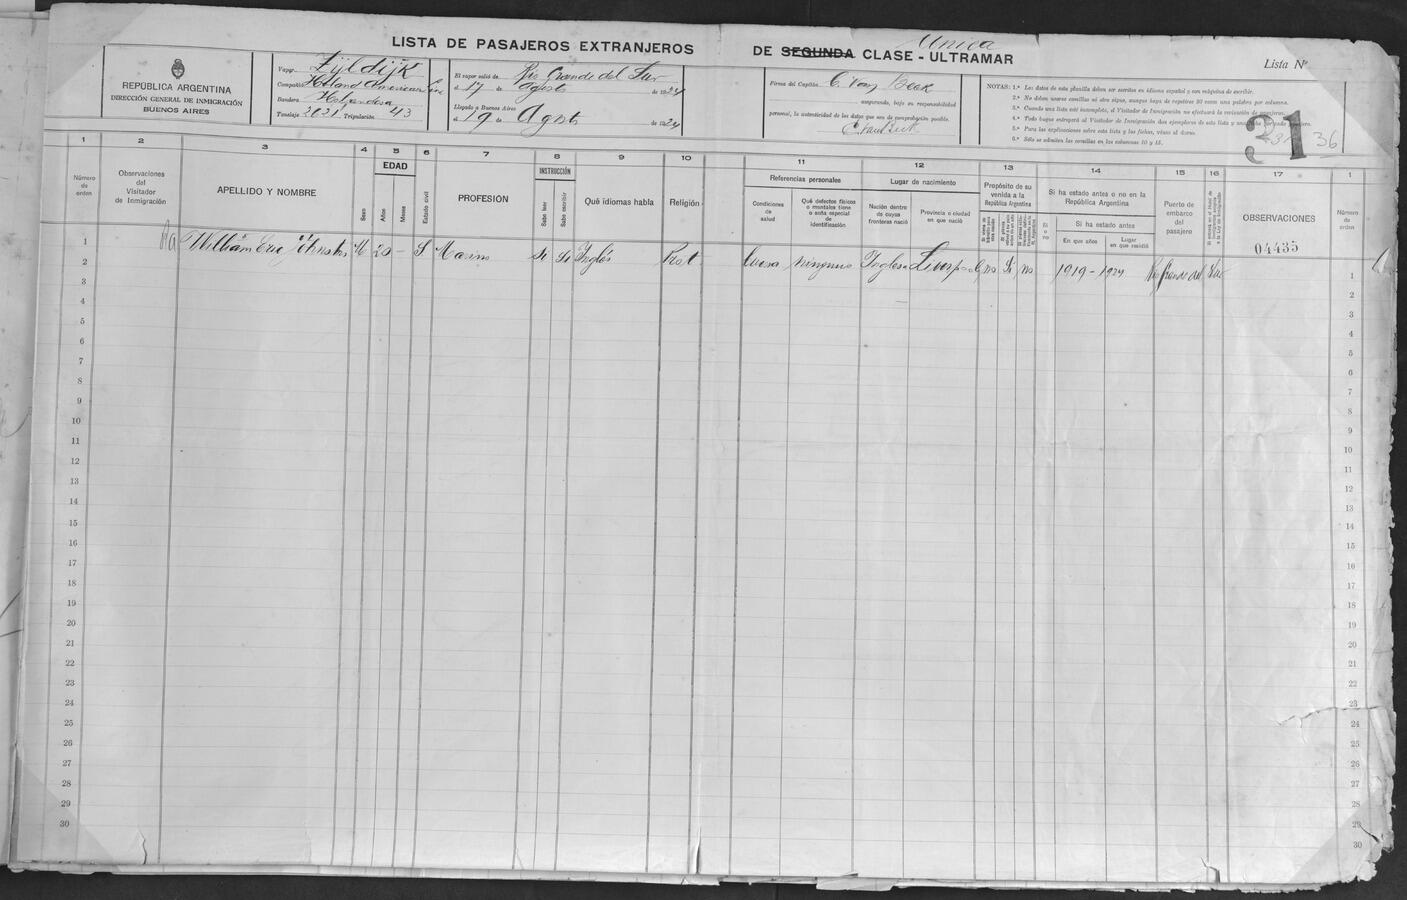 LISTA DE PASAJEROS EXTRANJEROS
DE SEGUNDA CLASE - ULTRAMAR
Unica
Lista Nº
REPÚBLICA ARGENTINA
DIRECCIÓN GENERAL DE INMIGRACIÓN
BUENOS AIRES
Vapor Zijldijk
Compañía Holland American Line
Bandera Holandesa
Tonelaje 2021 Tripulación 43
El vapor salió de Rio Grande del Sur
el 17 de Agosto de 1924
Llegado a Buenos Aires
el 19 de Agosto de 1924
Firma del Capitán
asegurando, bajo su responsabilidad
personal, la autenticidad de los datos que son de comprobación posible.
NOTAS: 1.ª Los datos de esta planilla deben ser escritos en idioma español y con máquina de escribir.
2.ª No deben usarse comillas ni otro signo, aunque haya de repetirse 30 veces una palabra por columna.
3.ª Cuando una lista esté incompleta, el Visitador de Inmigración no efectuará la revisación de pasajeros.
4.ª Todo buque entregará al Visitador de Inmigración dos ejemplares de esta lista y una
5.ª Para las explicaciones sobre esta lista y las fichas, véase al dorso.
6.ª Sólo se admiten las comillas en las columnas 10 y 15.
31
36
1 2 3 4 5 6 7 8 9 10 11 12 13 14 15 16 17 1
Número de orden
Observaciones del Visitador de Inmigración
APELLIDO Y NOMBRE
Sexo
EDAD
Años
Meses
Estado civil
PROFESIÓN
INSTRUCCIÓN
Sabe leer
Sabe escribir
Qué idiomas habla
Religión
Referencias personales
Condiciones de salud
Qué defectos físicos o mentales tiene o seña especial de identificación
Lugar de nacimiento
Nación dentro de cuyas fronteras nació
Provincia o ciudad en que nació
Propósito de su venida a la República Argentina
Si ha estado antes o no en la República Argentina
Sí o no
Si ha estado antes
En que años
Lugar en que residió
Puerto de embarco del pasajero
OBSERVACIONES
04435
Número de orden
William Eric Johnston M 20 - S Marino Si Si Inglés Prot Buena ninguno Inglesa Liverpool no Si no 1919 - 1924 Rio Grande del Sur
1
2
3
4
5
6
7
8
9
10
11
12
13
14
15
16
17
18
19
20
21
22
23
24
25
26
27
28
29
30
1
2
3
4
5
6
7
8
9
10
11
12
13
14
15
16
17
18
19
20
21
22
23
24
25
26
27
28
29
30